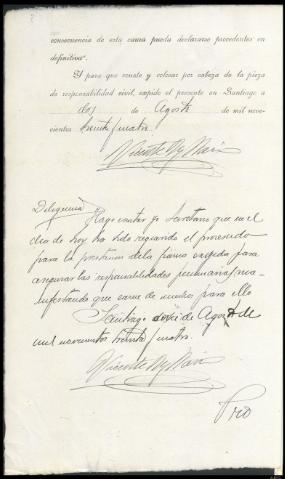 consecuencia de esta causa pueda declararse procedentes en
definitiva".
Y para que conste y colocar por cabeza de la pieza
de responsabilidad civil, expido el presente en Santiago a
dos de Agosto de mil nove-
cientos treinta y cuatro.
Vicente Rey
Diligencia Hago constar yo Secretario que en el
dia de hoy ha sido requerido el procesado
para la prestación de la fianza exigida para
asegurar las responsabilidades pecuniarias, ma-
nifestando que carece de medios para ello
Santiago de Agosto de
mil novecientos treinta y cuatro.
Vicente Rey